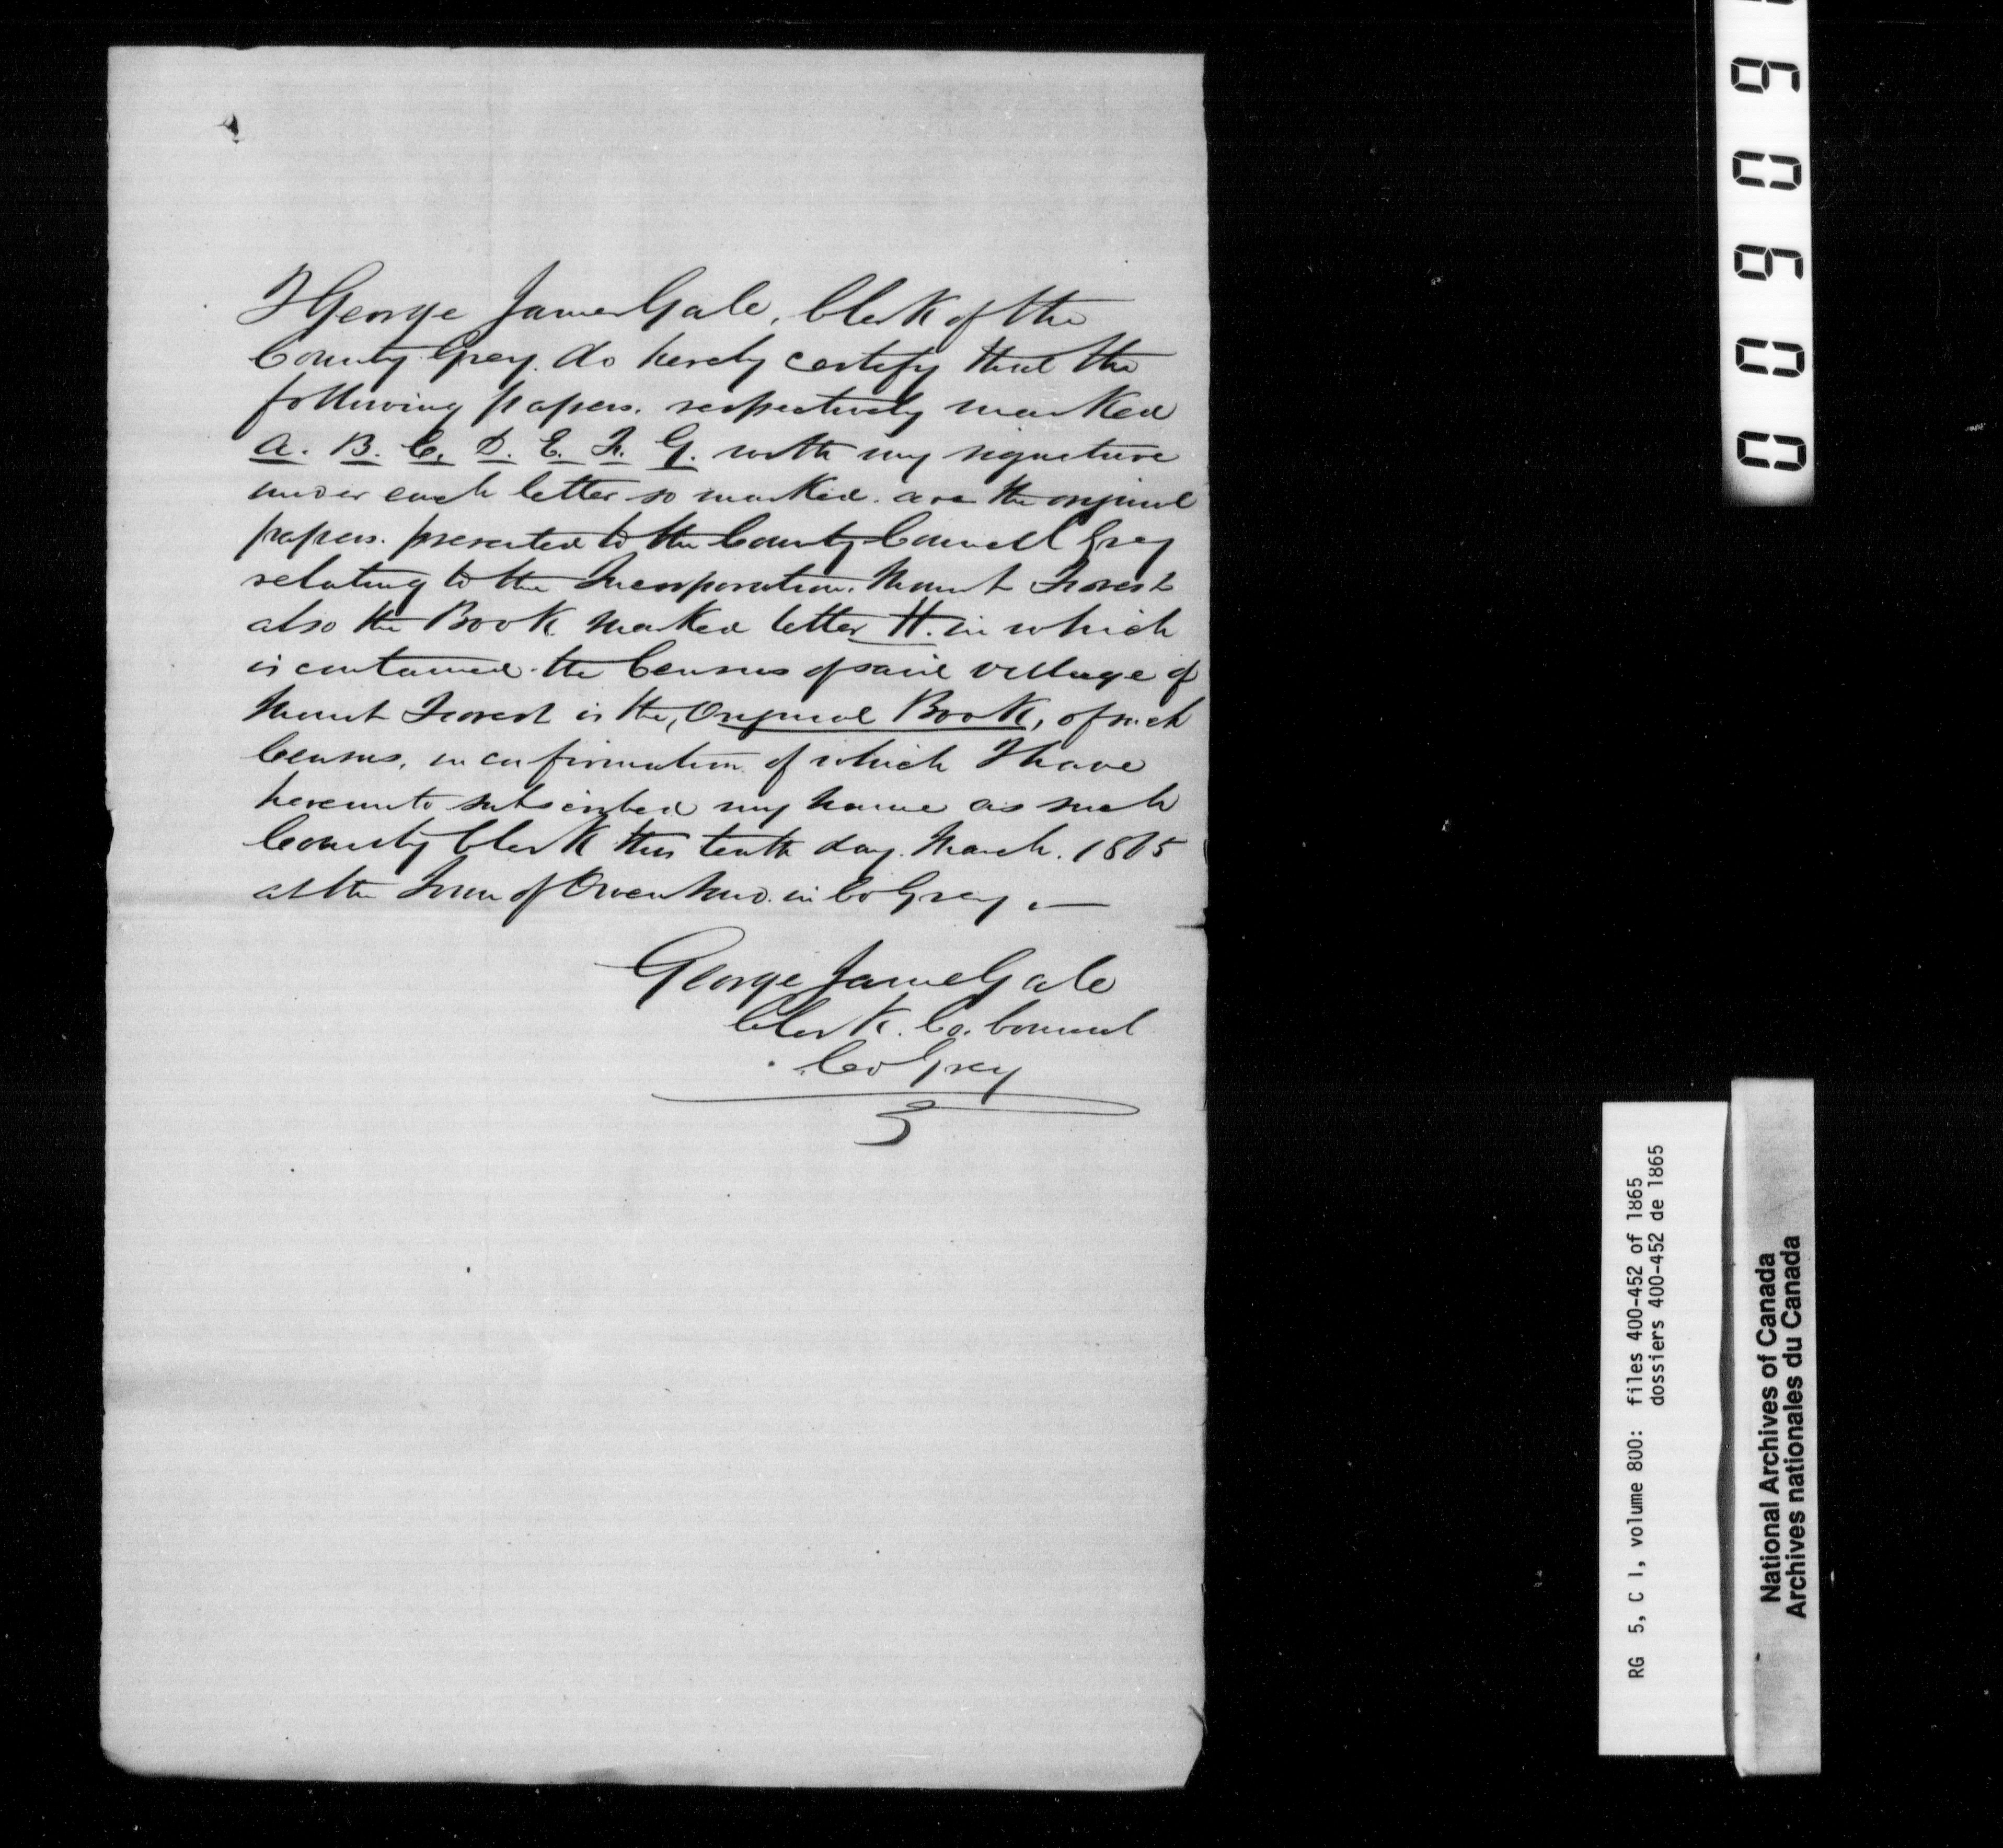 I George James Gale, Clerk of the
County Grey. do hereby certify that the
following papers. respectively marked
A. B. C. D. E. F. G. with my signature
under each letter so marked. are the original
papers. presented to the County Council Grey
relating to the Incorporation. Mount Forest
also the Book marked letter H. in which
is contained the Census of said village of
Mount Forest is the, Original Book, of such
Census, in confirmation of which I have
hereunto subscribed my name as such
County Clerk this tenth day. March. 1865
at the Town of Owen Sound. in Co Grey. —
George James Gale
Clerk. Co. Council
Co Grey
RG 5, C 1, volume 800: files 400-452 of 1865
dossiers 400-452 de 1865
National Archives of Canada
Archives nationales du Canada